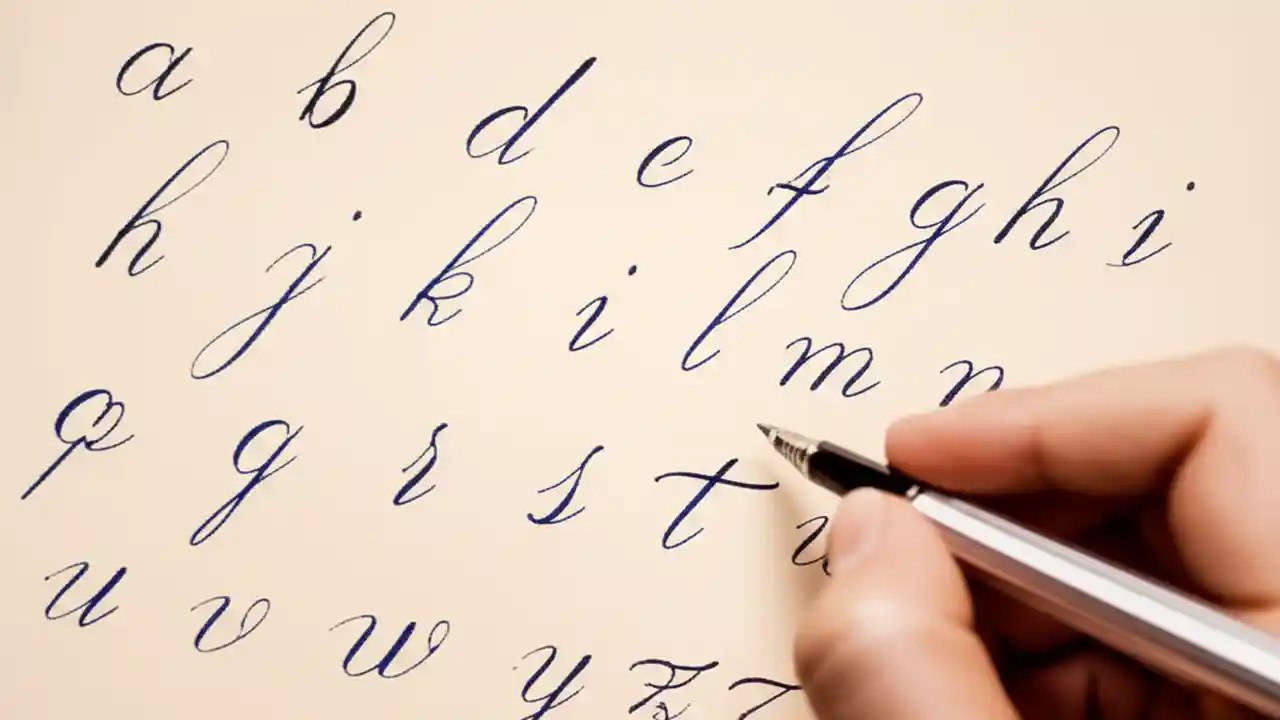 a b d e f g h i
h j k i l m n
p g r s t u
u v w y z z